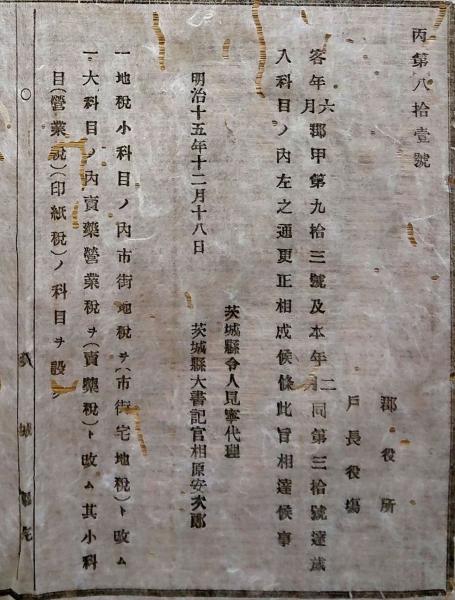 丙第八拾壹號
郡役所
戶長役塲
客年六月郡甲第九拾三號及本年二月同第三拾號達歲
入科目ノ內左之通更正相成候條此旨相達候事
茨城縣令人見寧代理
茨城縣大書記官相原安次郎
明治十五年十二月十八日
一地稅小科目ノ內市街地稅ヲ(市街宅地稅)ト改ム
一大科目ノ內賣藥營業稅ヲ(賣藥稅)ト改ム其小科
目(營業稅)(印紙稅)ノ科目ヲ設ク
○
茨城縣